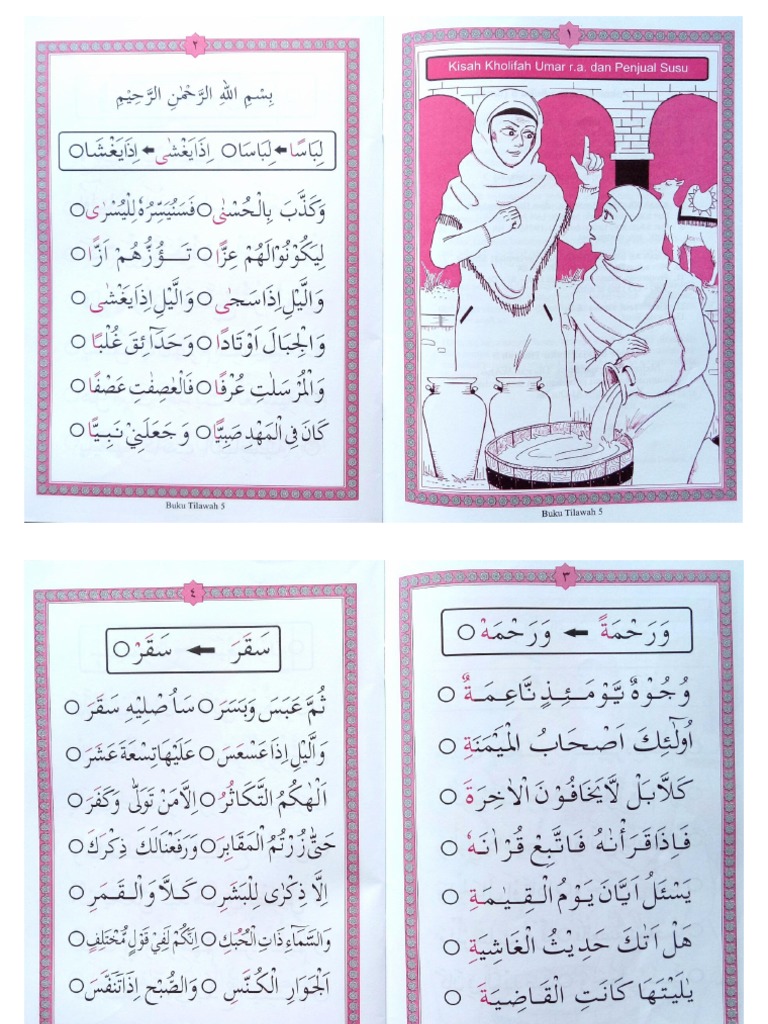 ١
Kisah Kholifah Umar r.a. dan Penjual Susu
Buku Tilawah 5
٢
بِسْمِ اللهِ الرَّحْمٰنِ الرَّحِيْمِ
لِبَاسًا ← لِبَاسَا ○ اِذَا يَغْشٰى ← اِذَا يَغْشَا ○
وَكَذَّبَ بِالْحُسْنٰى ○ فَسَنُيَسِّرُهٗ لِلْيُسْرٰى ○
لِيَكُوْنُوْا لَهُمْ عِزًّا ○ تَؤُزُّهُمْ اَزًّا ○
وَالَّيْلِ اِذَا سَجٰى ○ وَالَّيْلِ اِذَا يَغْشٰى ○
وَالْجِبَالَ اَوْتَادًا ○ وَحَدَآئِقَ غُلْبًا ○
وَالْمُرْسَلٰتِ عُرْفًا ○ فَالْعٰصِفٰتِ عَصْفًا ○
كَانَ فِى الْمَهْدِ صَبِيًّا ○ وَجَعَلَنِيْ نَبِيًّا ○
Buku Tilawah 5
٣
وَرَحْمَةً ← وَرَحْمَهْ ○
وُجُوْهٌ يَّوْمَئِذٍ نَّاعِمَةٌ ○
اُولٰٓئِكَ اَصْحَابُ الْمَيْمَنَةِ ○
كَلَّا بَلْ لَّا يَخَافُوْنَ الْاٰخِرَةَ ○
فَاِذَا قَرَأْنٰهُ فَاتَّبِعْ قُرْاٰنَهٗ ○
يَسْئَلُ اَيَّانَ يَوْمُ الْقِيٰمَةِ ○
هَلْ اَتٰكَ حَدِيْثُ الْغَاشِيَةِ ○
يٰلَيْتَهَا كَانَتِ الْقَاضِيَةَ ○
٤
سَقَرَ ← سَقَرْ ○
ثُمَّ عَبَسَ وَبَسَرَ ○ سَاُصْلِيْهِ سَقَرَ ○
وَالَّيْلِ اِذَا عَسْعَسَ ○ عَلَيْهَا تِسْعَةَ عَشَرَ ○
اَلْهٰكُمُ التَّكَاثُرُ ○ اِلَّا مَنْ تَوَلّٰى وَكَفَرَ ○
حَتّٰى زُرْتُمُ الْمَقَابِرَ ○ وَرَفَعْنَا لَكَ ذِكْرَكَ ○
اِلَّا ذِكْرٰى لِلْبَشَرِ ○ كَلَّا وَالْقَمَرِ ○
وَالسَّمَآءِ ذَاتِ الْحُبُكِ ○ اِنَّكُمْ لَفِيْ قَوْلٍ مُّخْتَلِفٍ ○
اَلْجَوَارِ الْكُنَّسِ ○ وَالصُّبْحِ اِذَا تَنَفَّسَ ○